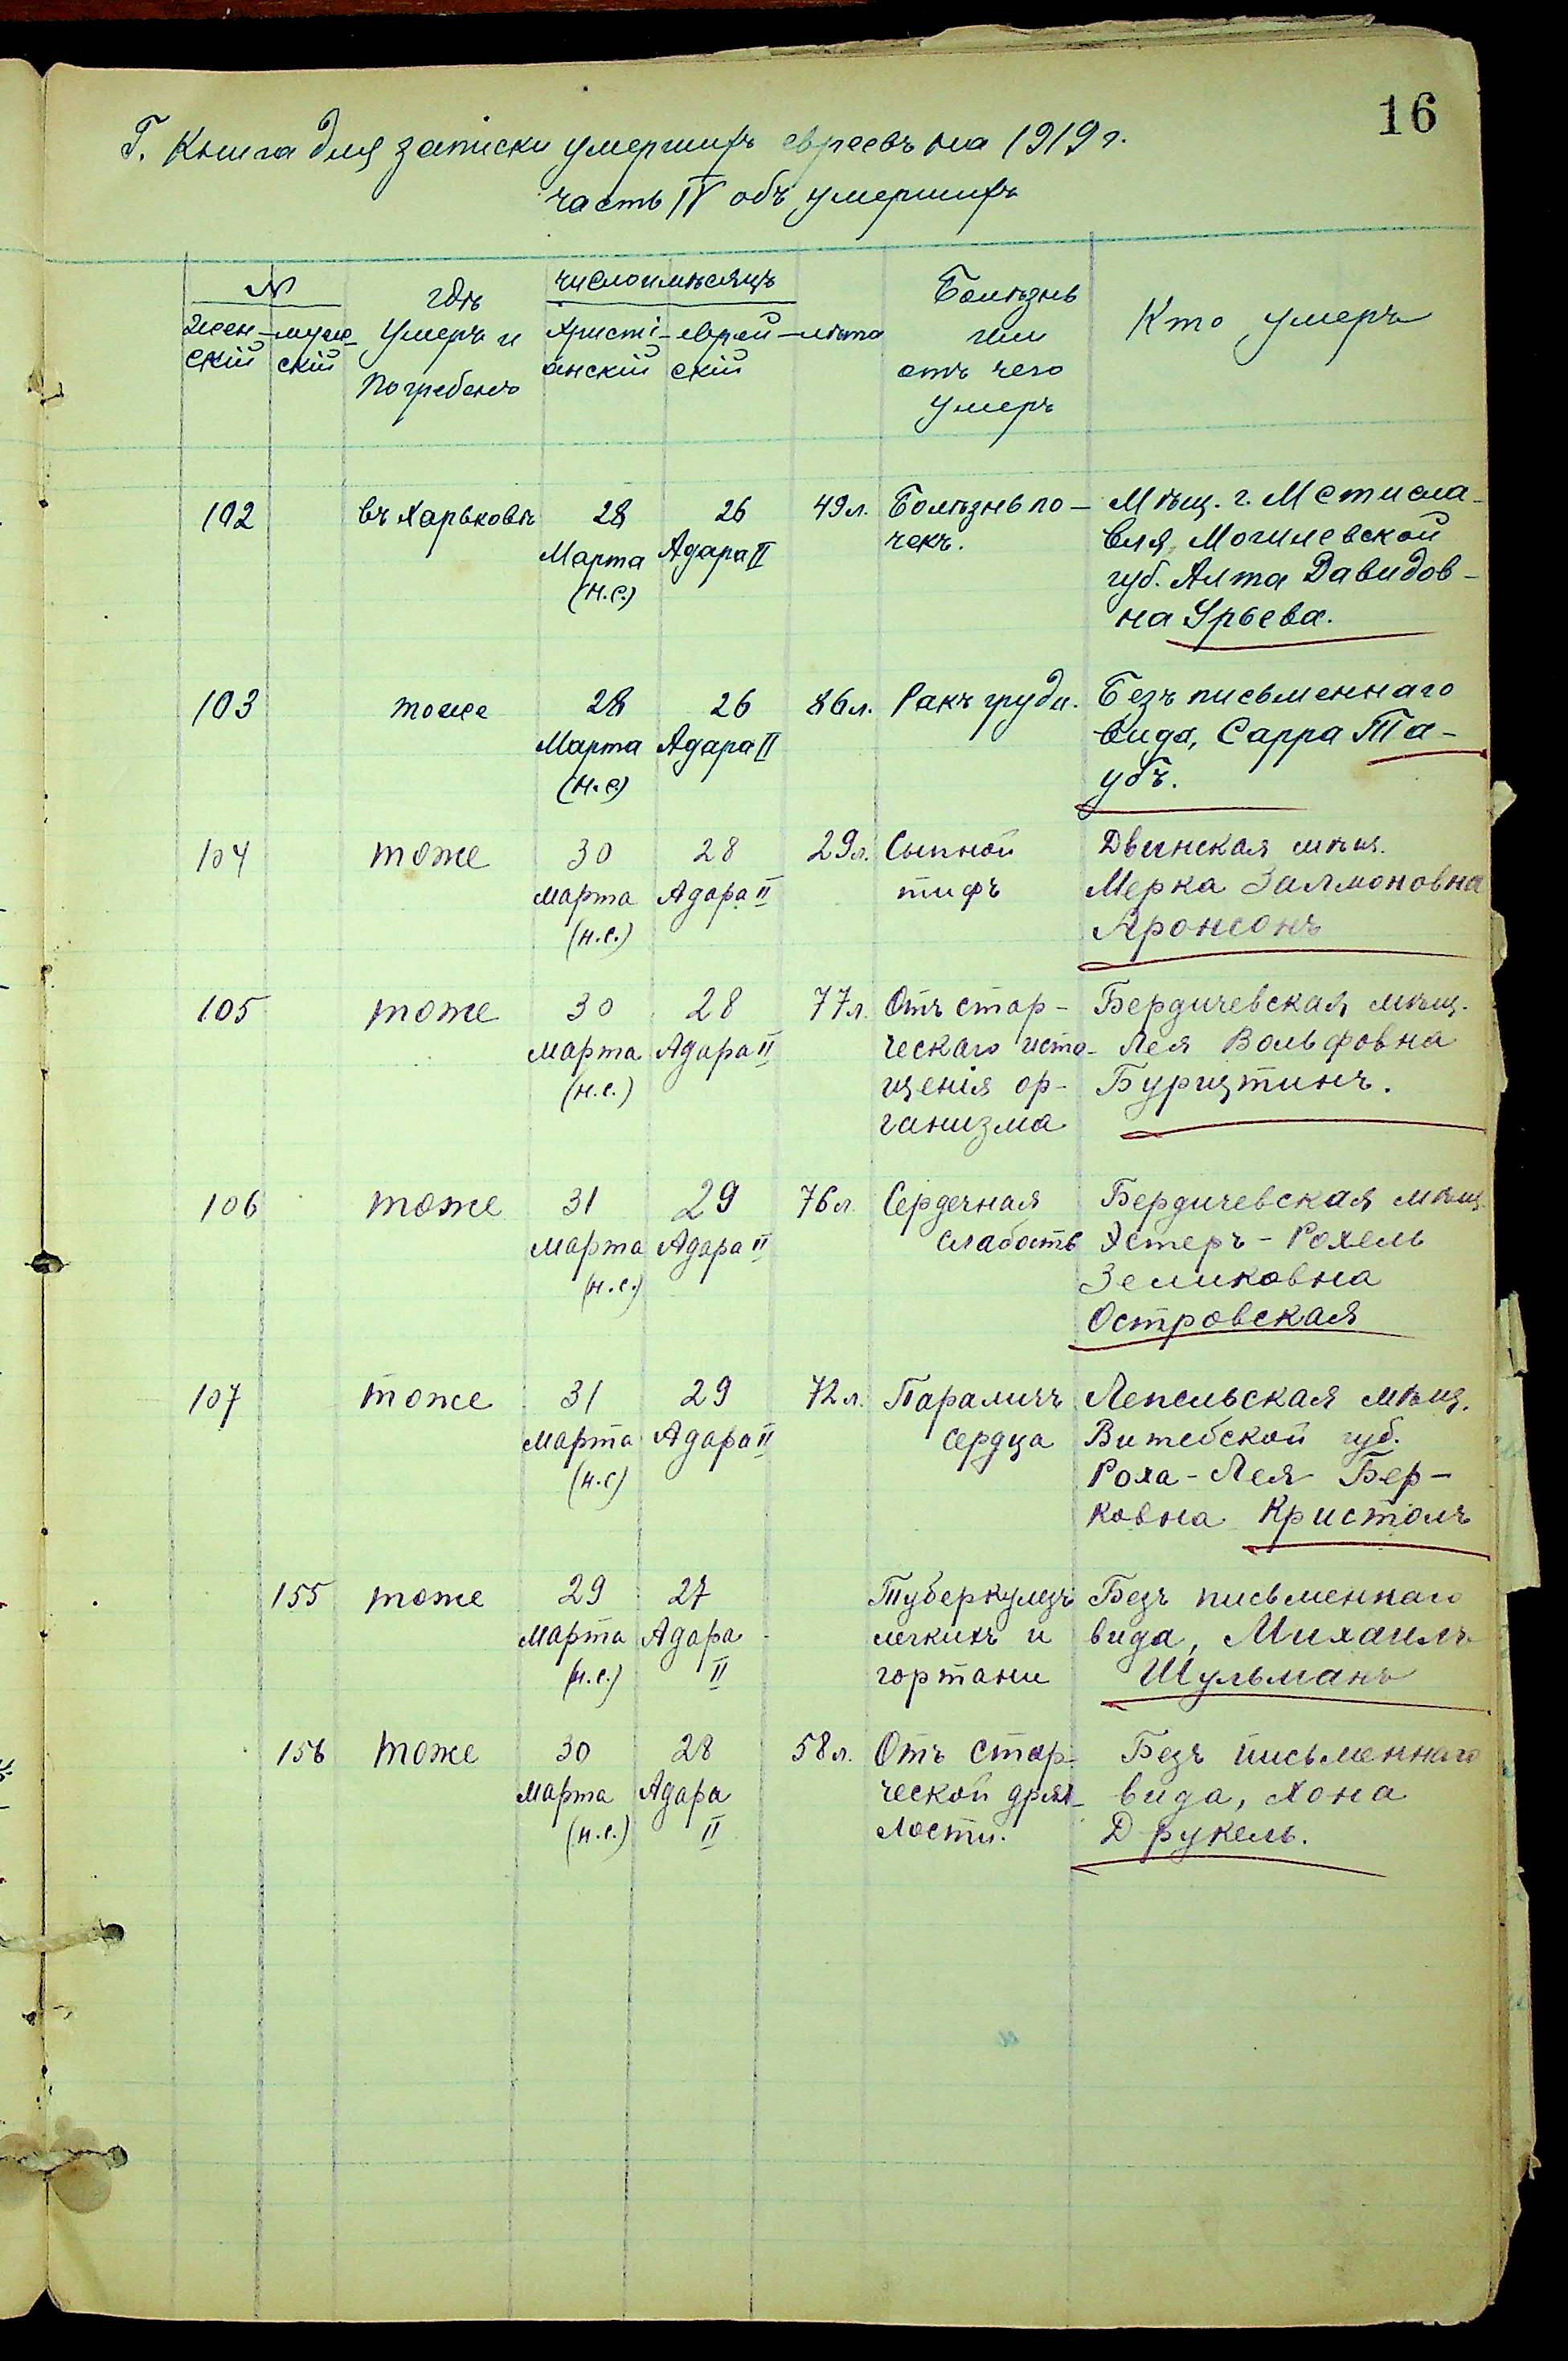 16
Г. Книга для записки умершихъ евреевъ на 1919 г.
часть IV объ умершихъ
№ гдѣ число и мѣсяцъ Болѣзнь
Жен- муже- умеръ и Христі- еврей- лѣта или Кто умеръ
скій скій погребенъ анскій скій отъ чего
умеръ
102 въ Харьковѣ 28 26 49 л. Болѣзнь по- Мѣщ. г. Мстисла-
Марта Адара II чекъ. вля, Могилевской
(н.с.) губ. Алта Давидов-
на Урьева.
103 тоже 28 26 86 л. Ракъ груди. Безъ письменнаго
Марта Адара II вида, Сарра Та-
(н.с) убъ.
104 тоже 30 28 29 л. Сыпной Двинская мѣщ.
Марта Адара II тифъ Мерка Залмоновна
(н.с.) Аронсонъ
105 тоже 30 28 77 л. Отъ стар- Бердичевская мѣщ.
Марта Адара II ческаго исто- Лея Вольфовна
(н.с.) щенія ор- Бурщтинъ.
ганизма
106 тоже 31 29 76 л. Сердечная Бердичевская мѣщ.
Марта Адара II слабость Эстеръ-Рохель
(н.с.) Зеликовна
Островская
107 тоже 31 29 72 л. Параличъ Лепельская мѣщ.
Марта Адара II сердца Витебской губ.
(н.с) Роха-Лея Бер-
ковна Кристолъ
155 тоже 29 27 Туберкулезъ Безъ письменнаго
Марта Адара легкихъ и вида, Михаилъ
(н.с.) II гортани Шульманъ
156 тоже 30 28 58 л. Отъ стар- Безъ письменнаго
Марта Адара ческой дрях- вида, Хона
(н.с.) II лости. Друкель.